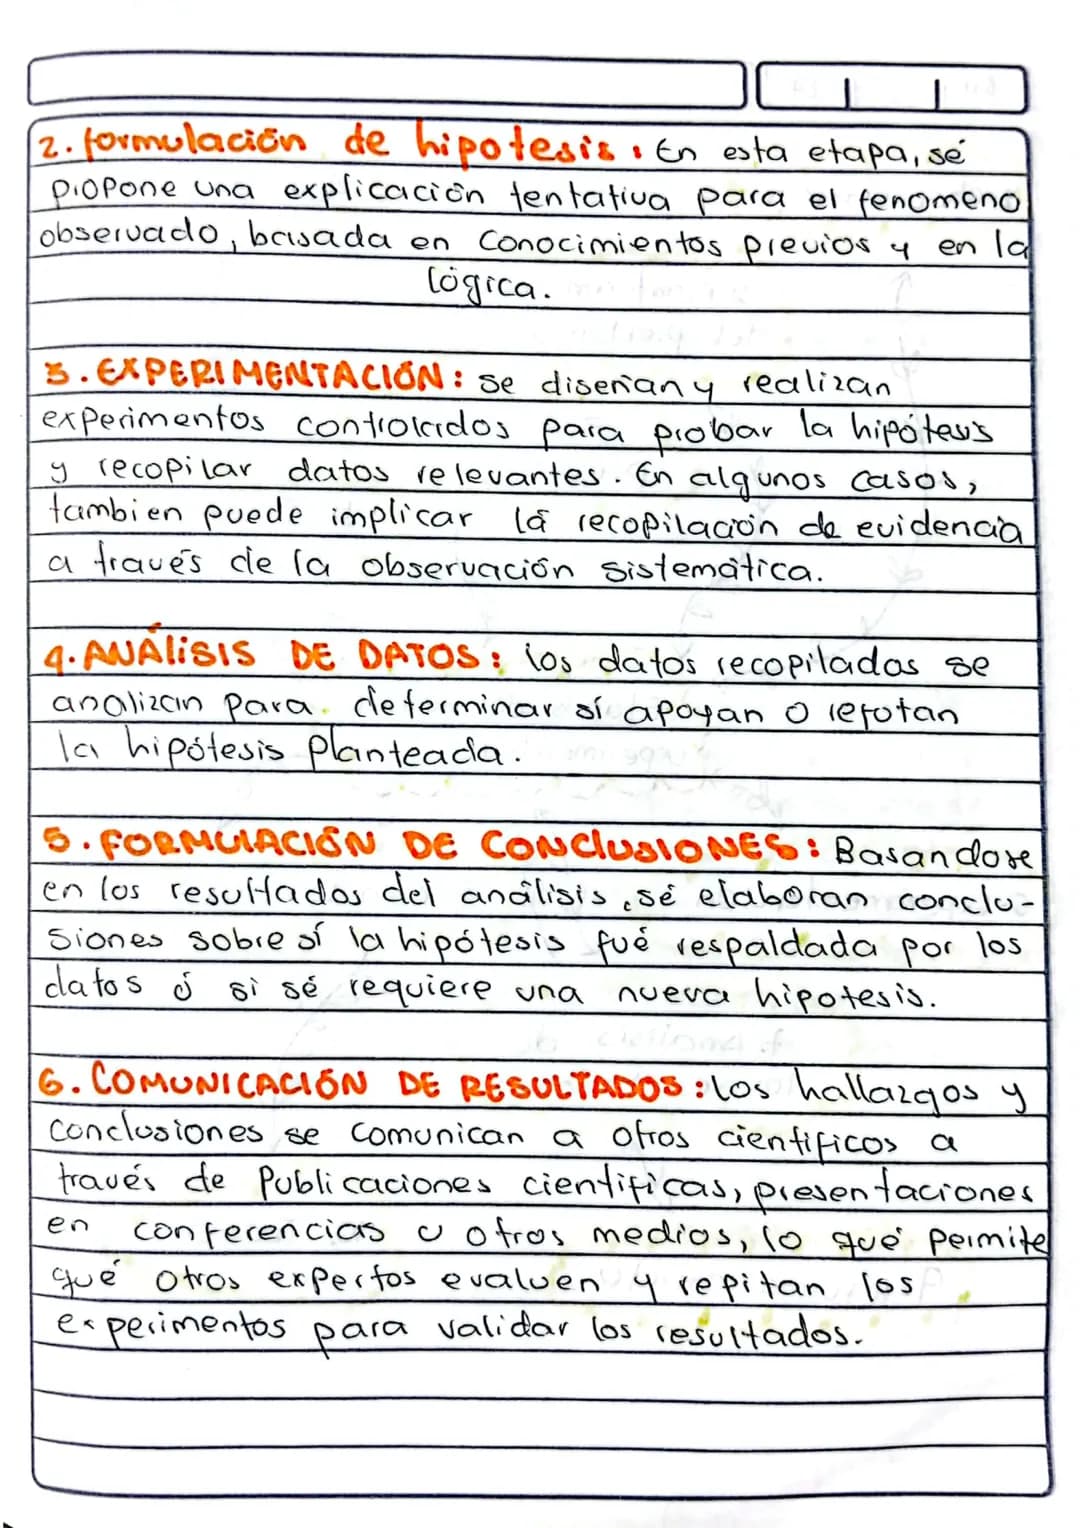 2. formulación de hipotesis: En esta etapa, sé
propone una explicación tentativa para el fenomeno
observado, basada en Conocimientos previos y en la
lógica.
3. EXPERIMENTACIÓN: se diseñan y realizan
experimentos controlados para probar la hipótesis
y recopilar datos relevantes. En algunos casos,
tambien puede implicar lá recopilación de evidencia
a través de la observación sistemática.
4. ANÁLISIS DE DATOS: los datos recopilados se
analizan para determinar sí apoyan o refutan
la hipótesis planteada.
5. FORMULACIÓN DE CONCLUSIONES: Basandose
en los resultados del análisis, sé elaboran conclu-
siones sobre sí la hipótesis fué respaldada por los
datos ó si sé requiere una nueva hipotesis.
6. COMUNICACIÓN DE RESULTADOS: los hallazgos y
conclusiones se comunican a otros cientificos a
través de Publicaciones cientificas, presentaciones
en conferencias u otros medios, lo qué permite
qué otros expertos evaluen y repitan los
experimentos para validar los resultados.